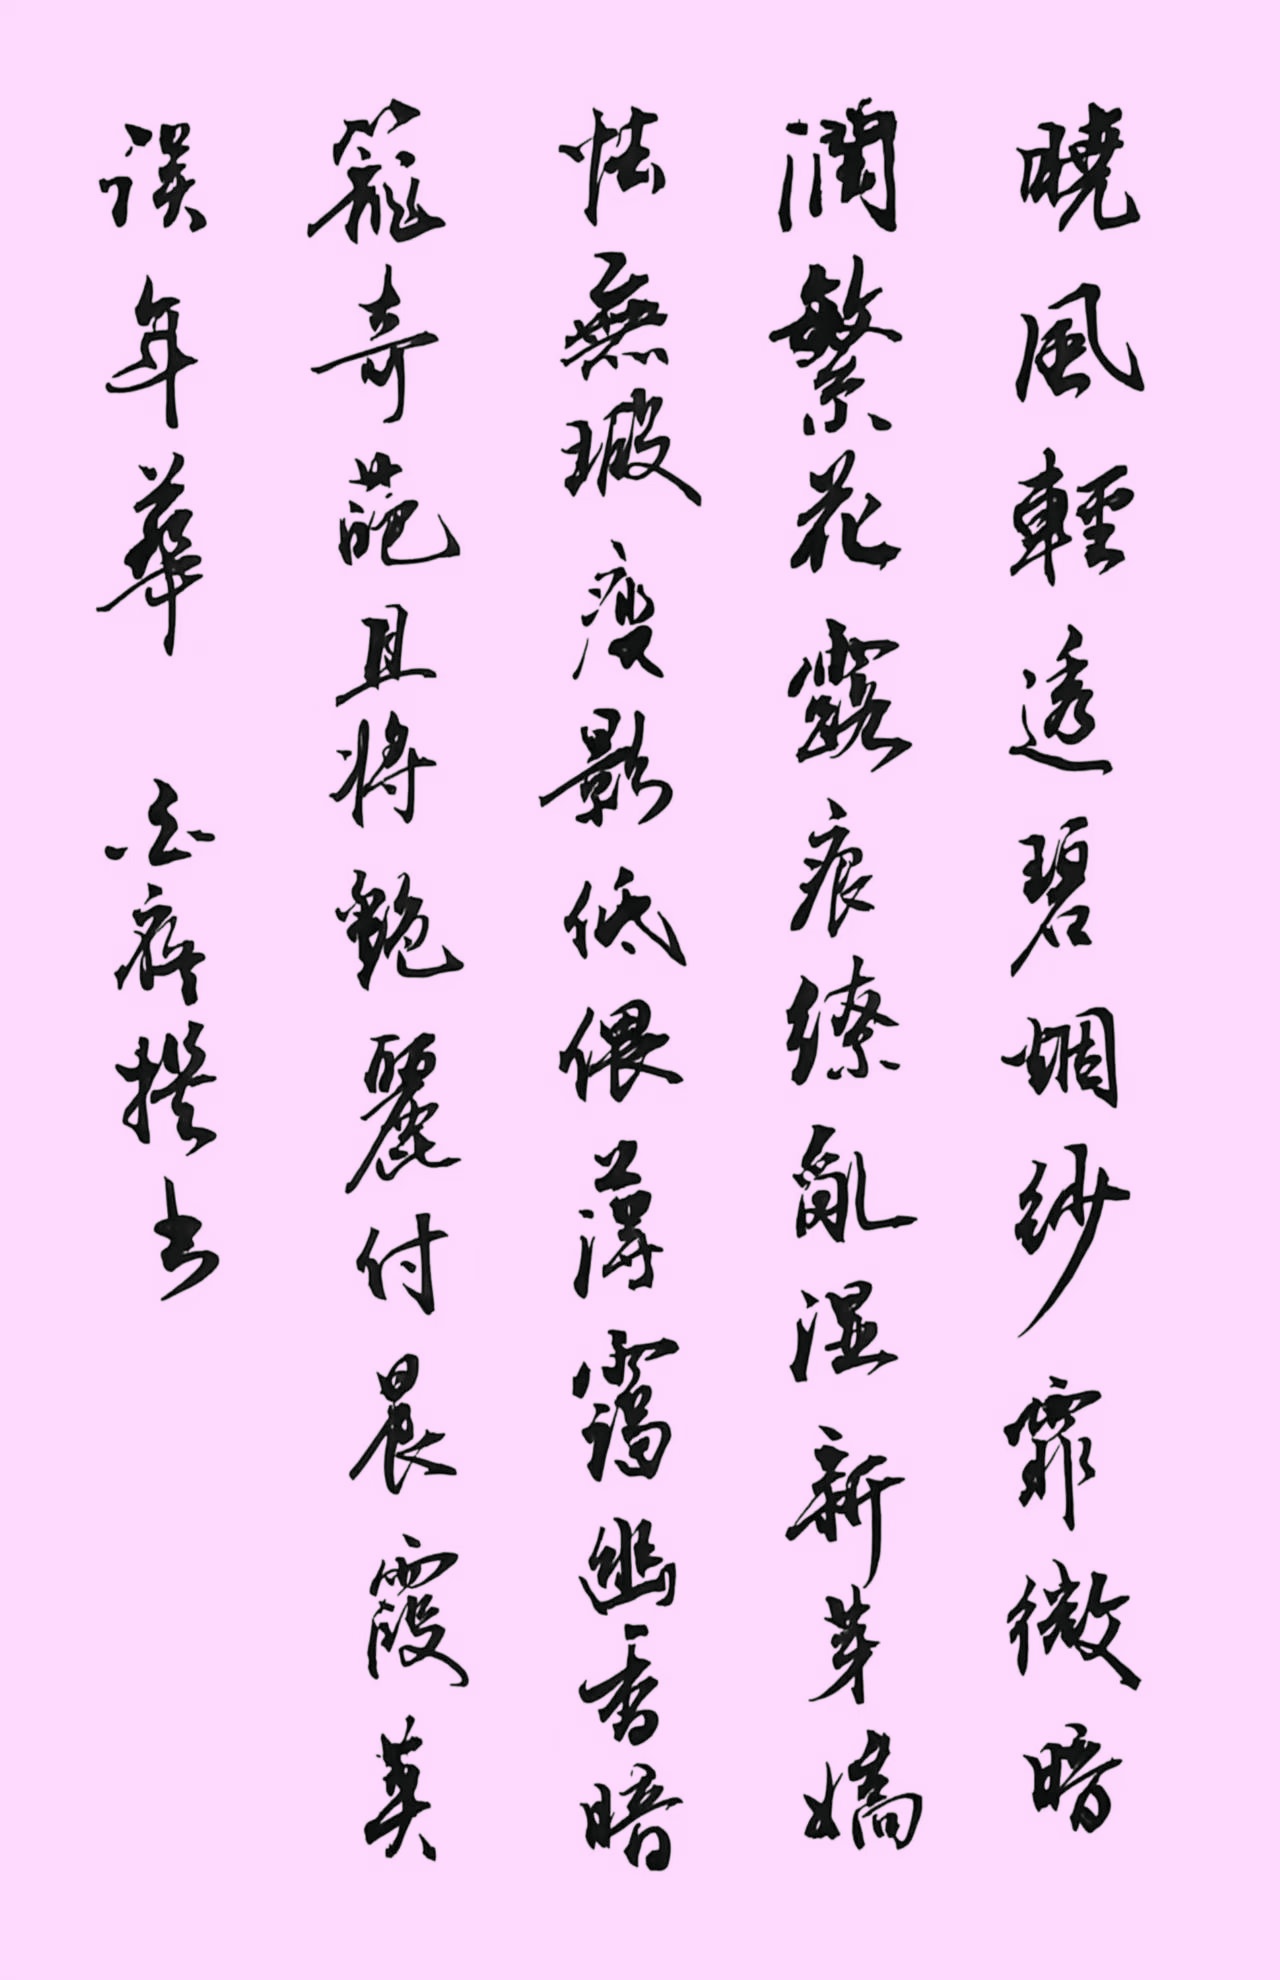 曉風輕透碧烟紗霏微暗
潤繁花露痕繚亂濕新芽嬌
怯無瑕瘦影低偎薄靄幽香暗
籠奇葩且將艷麗付晨霞莫
誤年華 齋撰書